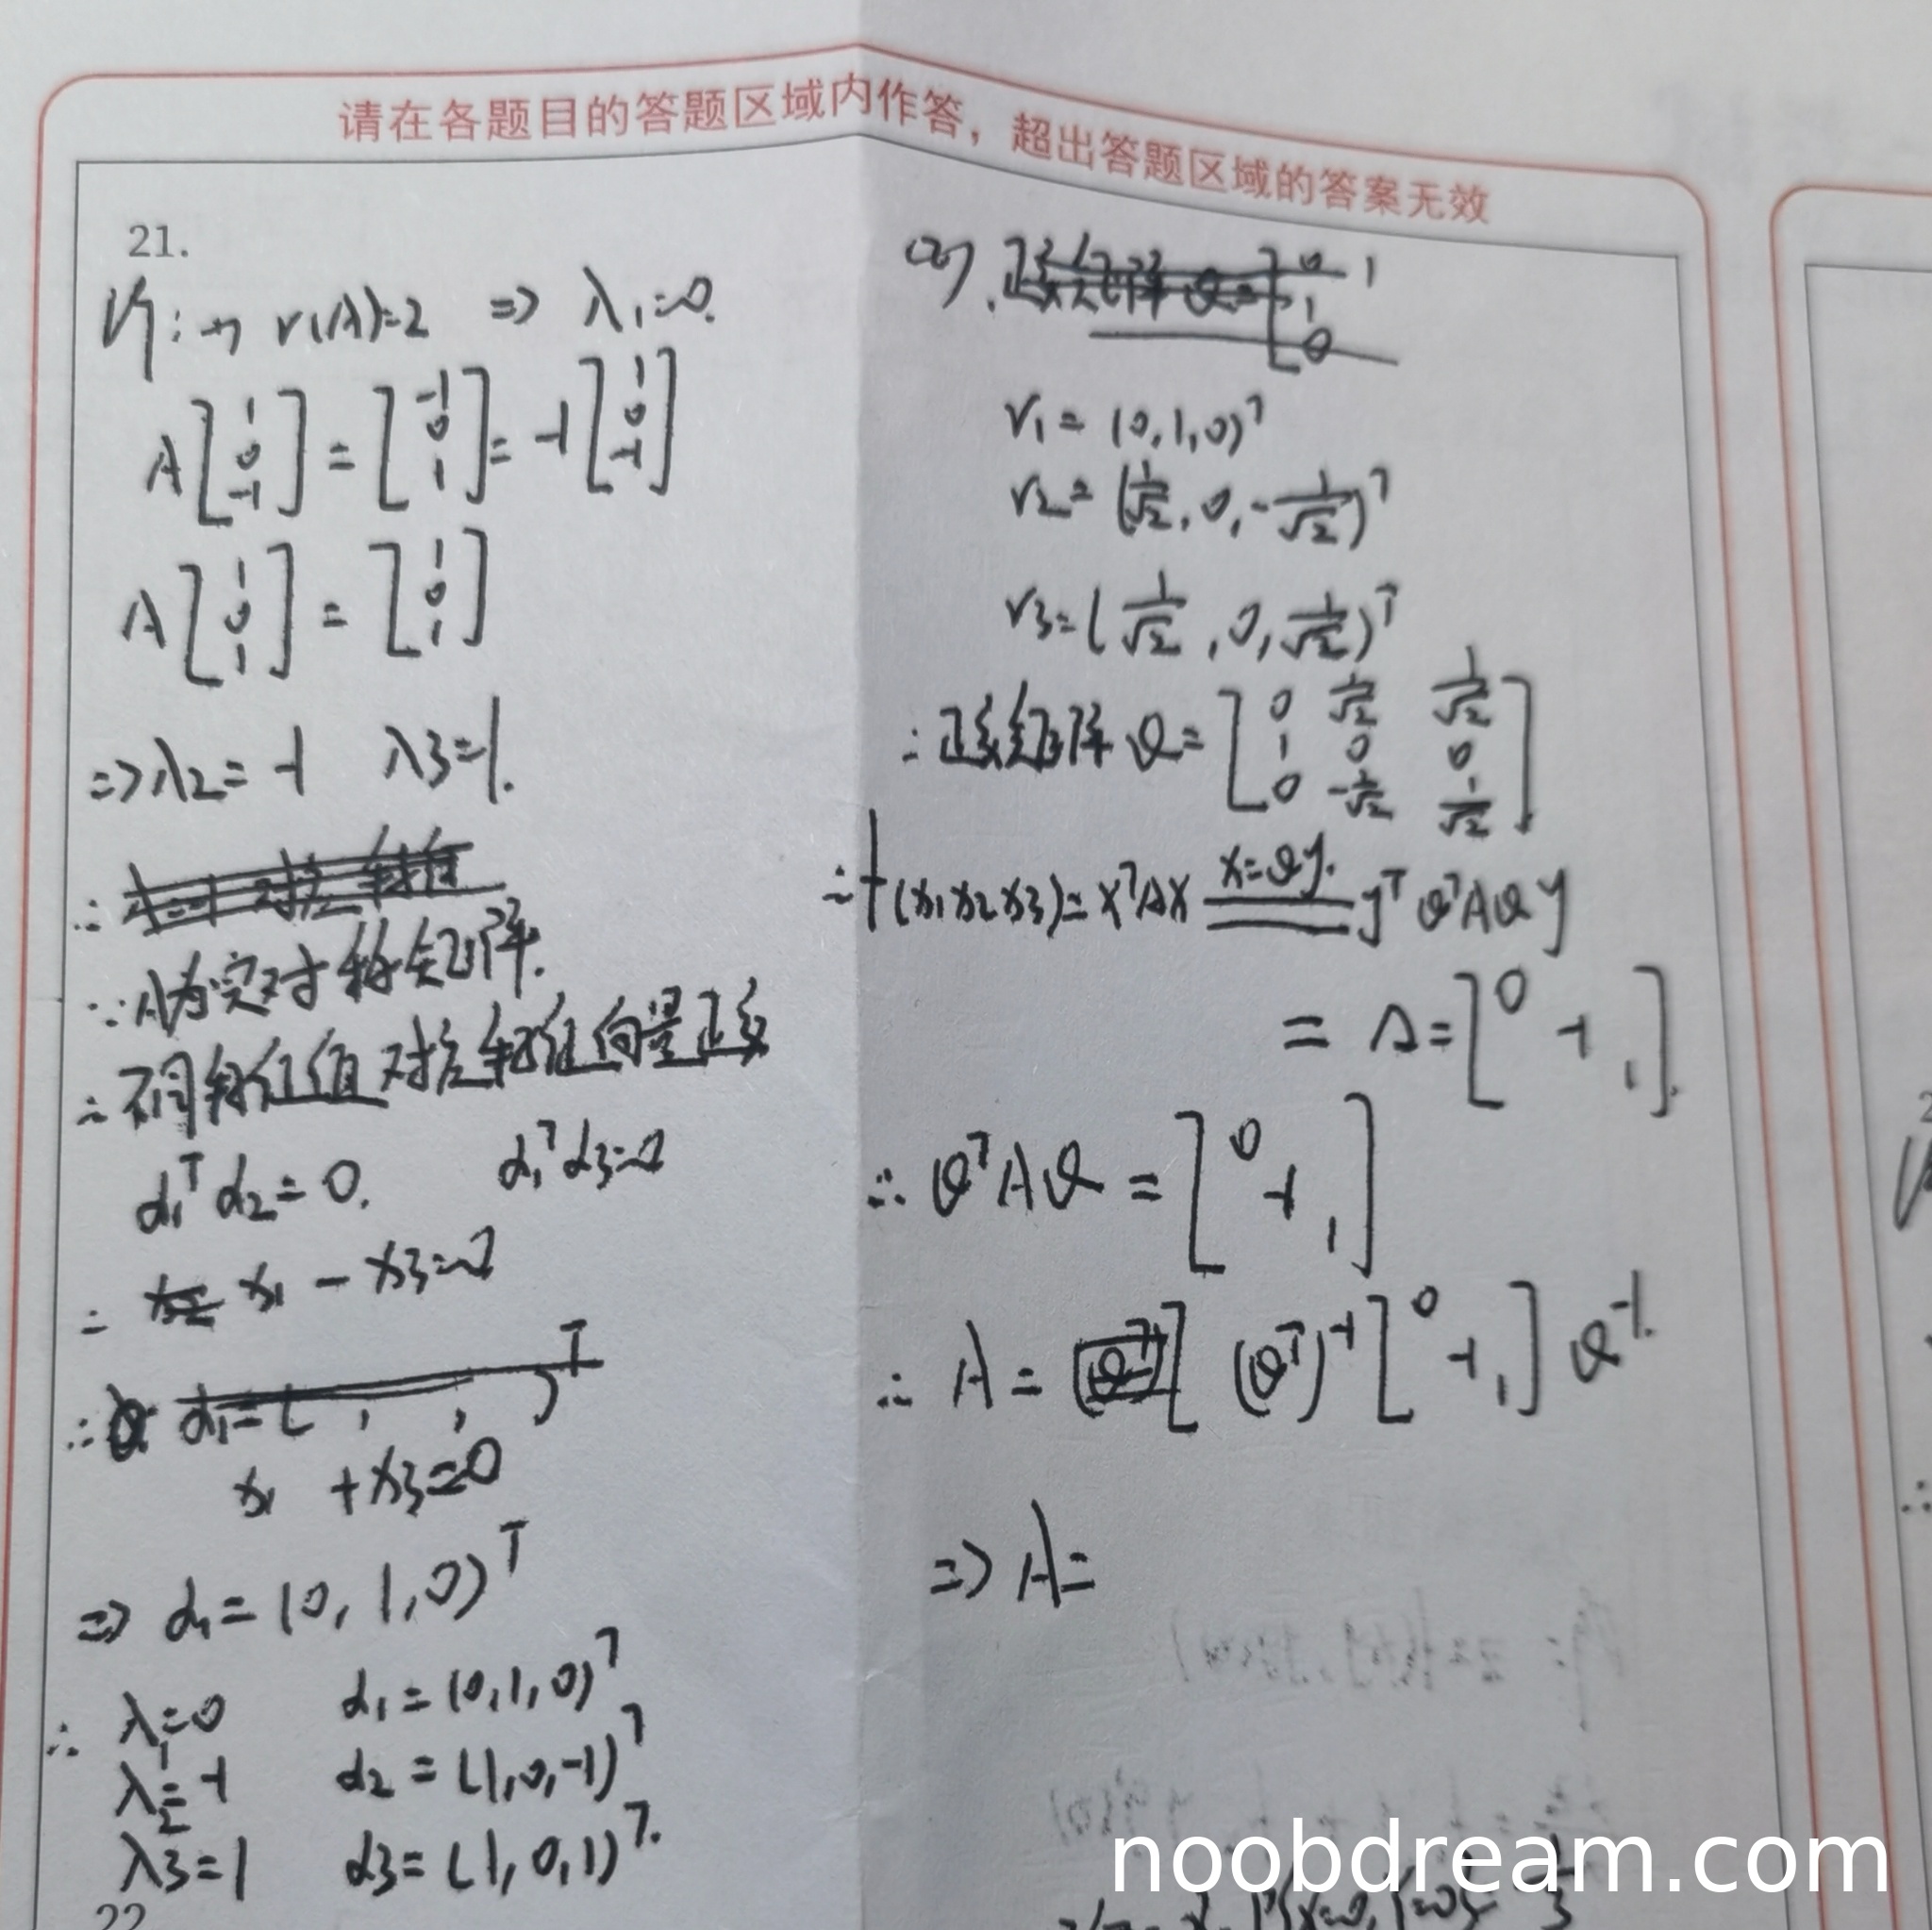 请在各题目的答题区域内作答，超出答题区域的答案无效
21.
(1) r(A)=2 => λ1=0.
A[1 0 -1] = [-1 0 1] = -1[1 0 -1]
A[1 0 1] = [1 0 1]
=> λ2 = -1 λ3=1.
∵ A为实对称矩阵.
∴ 不同特征值对应特征向量正交
α1^T α2 = 0. α1^T α3=0
= x1 - x3=0
∴ α1=( , , )^T
x1 + x3=0
=> α1 = (0, 1, 0)^T
∴ λ1=0 α1 = (0,1,0)^T
λ2=-1 α2 = (1,0,-1)^T
λ3=1 α3=(1,0,1)^T.
22
(2). 正交矩阵 Q= [0 1 0 1
r1 = (0,1,0)^T
r2 = (1/√2, 0, -1/√2)^T
r3=(1/√2, 0, 1/√2)^T
∴正交矩阵 Q= [0 1/√2 1/√2
1 0 0
0 -1/√2 1/√2]
∴ f(x1 x2 x3)= x^T A x x=Qy. y^T Q^T A Q y
= Λ = [0 -1 1].
∴ Q^T A Q = [0 -1 1]
∴ A = (Q^T)[ (Q^T)^-1 [0 -1 1] Q^-1.
=> A=
noobdream.com